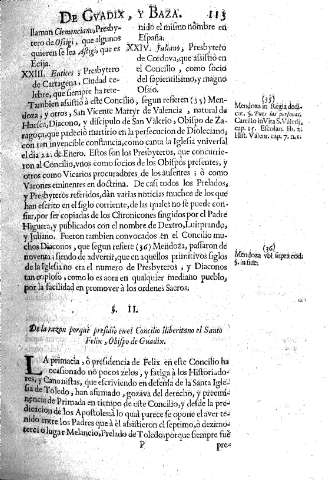 DE GVADIX, Y BAZA. 113
llamon Clemenciano, Presby-
tero de Ossigi, que algunos
quieren sea Astigi, que es
Ecija.
XXIII. Eutices, Presbytero
de Cartagena, Ciudad ce-
lebre, que siempre ha rete-
nido el mismo nombre en
España.
XXIV. Juliano, Presbytero
de Cordova, que assistió en
el Concilio, como socio
del sapientissimo, y magno
Ossio.
Tambien assistió à este Concilio, segun refieren (35) Men-
doza, y otros, San Vicente Martyr de Valencia, natural de
Huesca, Diacono, y discipulo de San Valerio, Obispo de Za-
ragoça, que padeciò martirio en la persecucion de Diocleciano,
con tan invencible constancia, como canta la Iglesia vniversal
el dia 22. de Enero. Estos son los Presbyteros, que concurrie-
ron al Concilio, vnos como socios de los Obispos presentes, y
otros como Vicarios procuradores de los ausentes, ò como
Varones eminentes en doctrina. De casi todos los Prelados,
y Presbyteros referidos, dàn varias noticias muchos de los que
han escrito en el siglo corriente, de las quales no se puede con-
fiar, por ser copiadas de los Chronicones fingidos por el Padre
Higuera, y publicados con el nombre de Dextro, Luitprando,
y Juliano. Fueron tambien convocados en el Concilio mu-
chos Diaconos, que segun refiere (36) Mendoza, passaron de
noventa; siendo de advertir, que en aquellos primitivos siglos
de la Iglesia no era el numero de Presbyteros, y Diaconos
tan copioso, como lo es aora en qualquier mediano pueblo,
por la facilidad en promover à los ordenes Sacros.
(35)
Mendoza in Regia dedic-
Hist. Valent. cap. 7. n. 1.
(36)
Mendoza vbi supra cod.
§. II.
De la razon porquè presidió en el Concilio Iliberitano el Santo
Felix, Obispo de Guadix.
LA primacia, ò presidencia de Felix en este Concilio ha
ocasionado no pocos zelos, y fatiga à los Historiado-
res, y Canonistas, que escriviendo en defensa de la Santa Igle-
sia de Toledo, han afirmado, gozava del derecho, y preemi-
nencia de Primada en tiempo de este Concilio, y desde la pre-
dicacion de los Apostoles; à lo qual parece se opone el aver te-
nido entre los Padres que à èl assistieron el septimo, ò dezimo-
tercio lugar Melancio, Prelado de Toledo, porque siempre fuè
P pre-